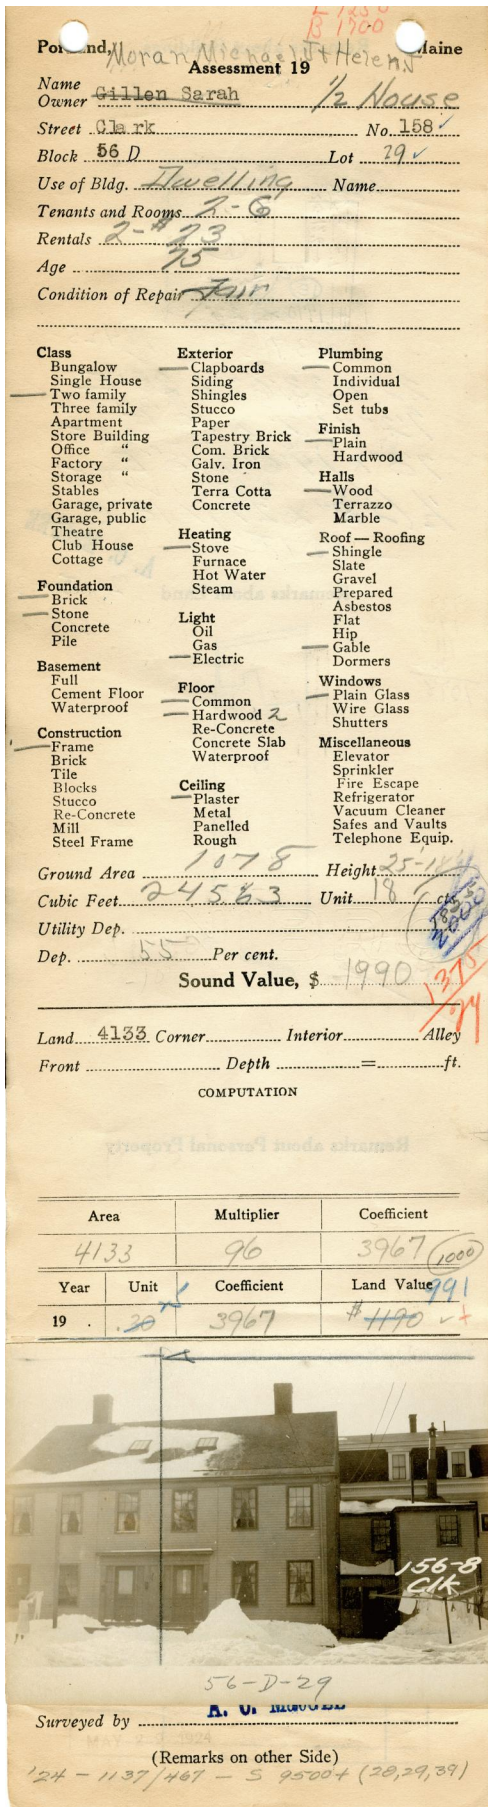 L 1250
B 1700
Portland, Maine
Moran Michael J & Helen J
Assessment 19
Name
Owner Gillen Sarah 1/2 House
Street Clark No. 158 ✓
Block 56 D Lot 29 ✓
Use of Bldg. Dwelling Name
Tenants and Rooms 2-6
Rentals 2-$23
Age 75
Condition of Repair Fair
Class
Bungalow
Single House
Two family
Three family
Apartment
Store Building
Office "
Factory "
Storage "
Stables
Garage, private
Garage, public
Theatre
Club House
Cottage
Foundation
Brick
Stone
Concrete
Pile
Basement
Full
Cement Floor
Waterproof
Construction
Frame
Brick
Tile
Blocks
Stucco
Re-Concrete
Mill
Steel Frame
Exterior
Clapboards
Siding
Shingles
Stucco
Paper
Tapestry Brick
Com. Brick
Galv. Iron
Stone
Terra Cotta
Concrete
Heating
Stove
Furnace
Hot Water
Steam
Light
Oil
Gas
Electric
Floor
Common
Hardwood 2
Re-Concrete
Concrete Slab
Waterproof
Ceiling
Plaster
Metal
Panelled
Rough
Plumbing
Common
Individual
Open
Set tubs
Finish
Plain
Hardwood
Halls
Wood
Terrazzo
Marble
Roof — Roofing
Shingle
Slate
Gravel
Prepared
Asbestos
Flat
Hip
Gable
Dormers
Windows
Plain Glass
Wire Glass
Shutters
Miscellaneous
Elevator
Sprinkler
Fire Escape
Refrigerator
Vacuum Cleaner
Safes and Vaults
Telephone Equip.
Ground Area 1078 Height 25-1
Cubic Feet 24563 Unit 18 cts.
Utility Dep.
Dep. 55 Per cent.
Sound Value, $ 1990
1375/24
Land 4133 Corner Interior Alley
Front Depth = ft.
COMPUTATION
Area Multiplier Coefficient
4133 96 3967 1000
Year Unit Coefficient Land Value 991
19 . .30 3967 $ 1190
156-8
Clk
56-D-29
Surveyed by
(Remarks on other Side)
'24 - 1137/467 - S 9500+ (28,29,39)